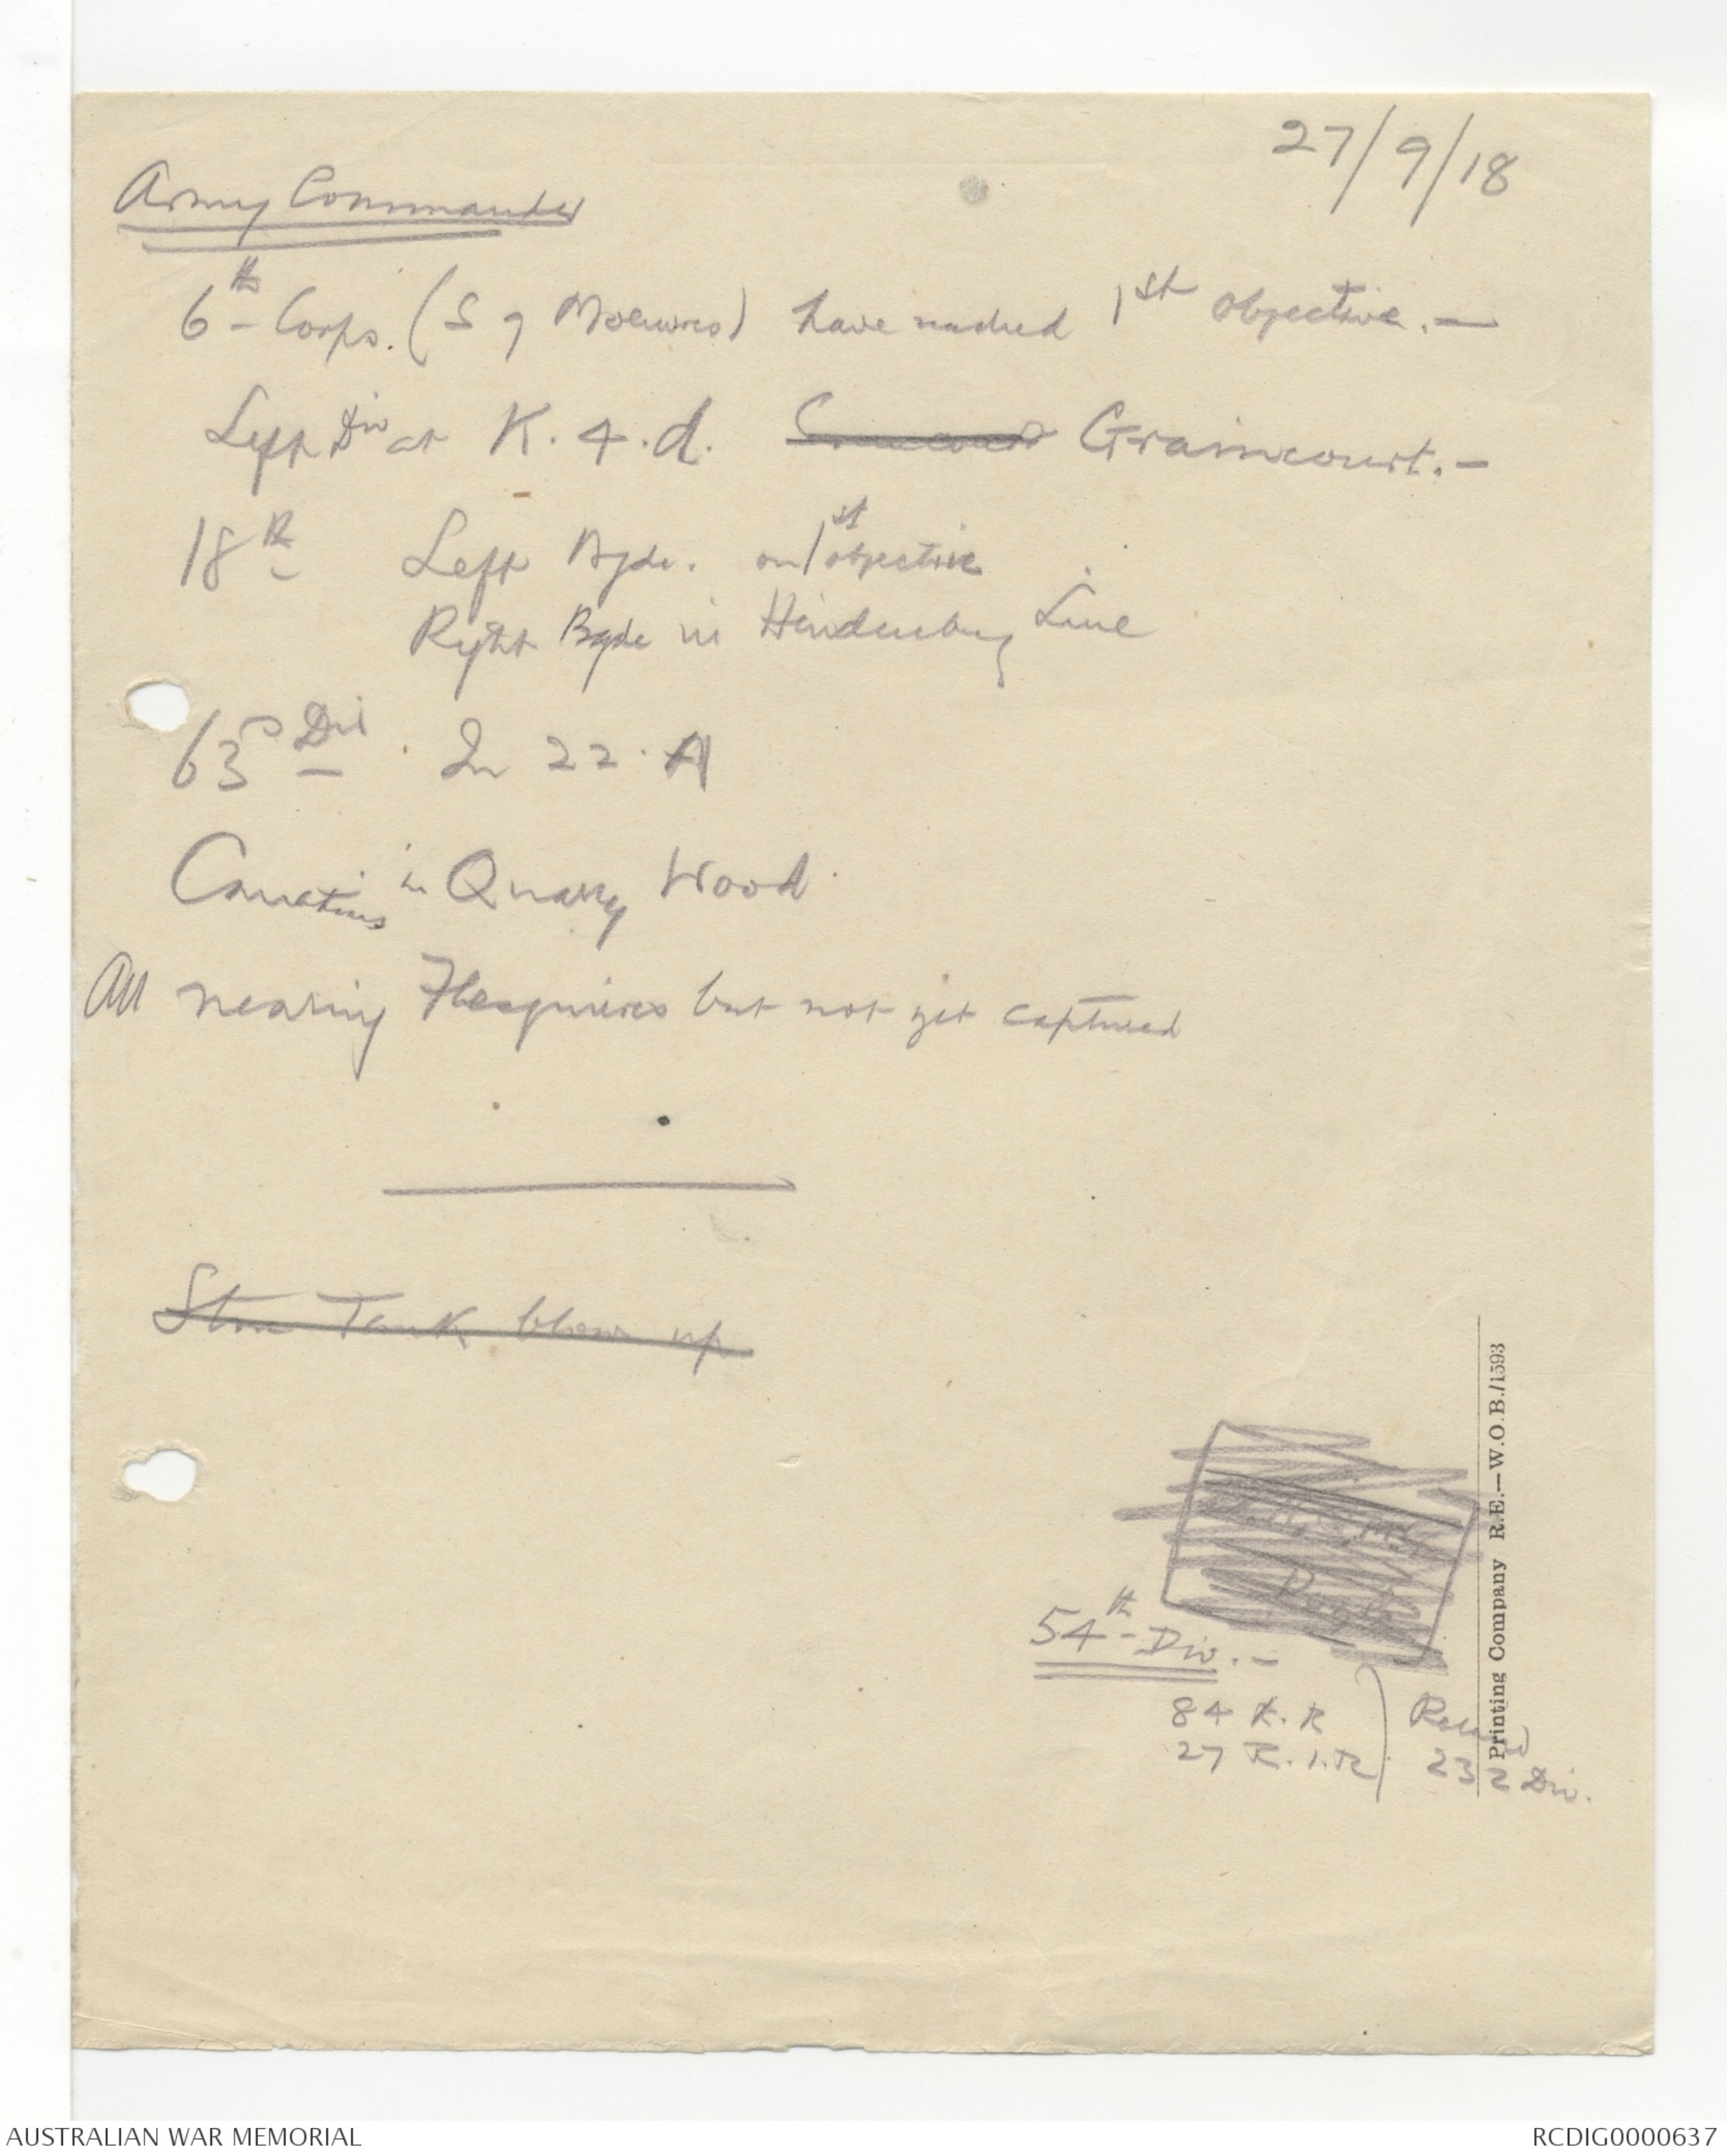 27/9/18
Army Commander
6th Corps. (S of Moeuvres) have reached 1st objective. —
Left Div at K.4.d. Graincourt. —
18th Left Bgde. on 1st objective
Right Bgde in Hindenburg Line
63rd Div. In 22.A
in Quarry Wood.
All nearing Flesquieres but not yet captured
Tank blown up
54th Div. —
84 R.R
27 R.I.R
232 Div.
Printing Company R.E.—W.O.B./1593
AUSTRALIAN WAR MEMORIAL
RCDIG0000637